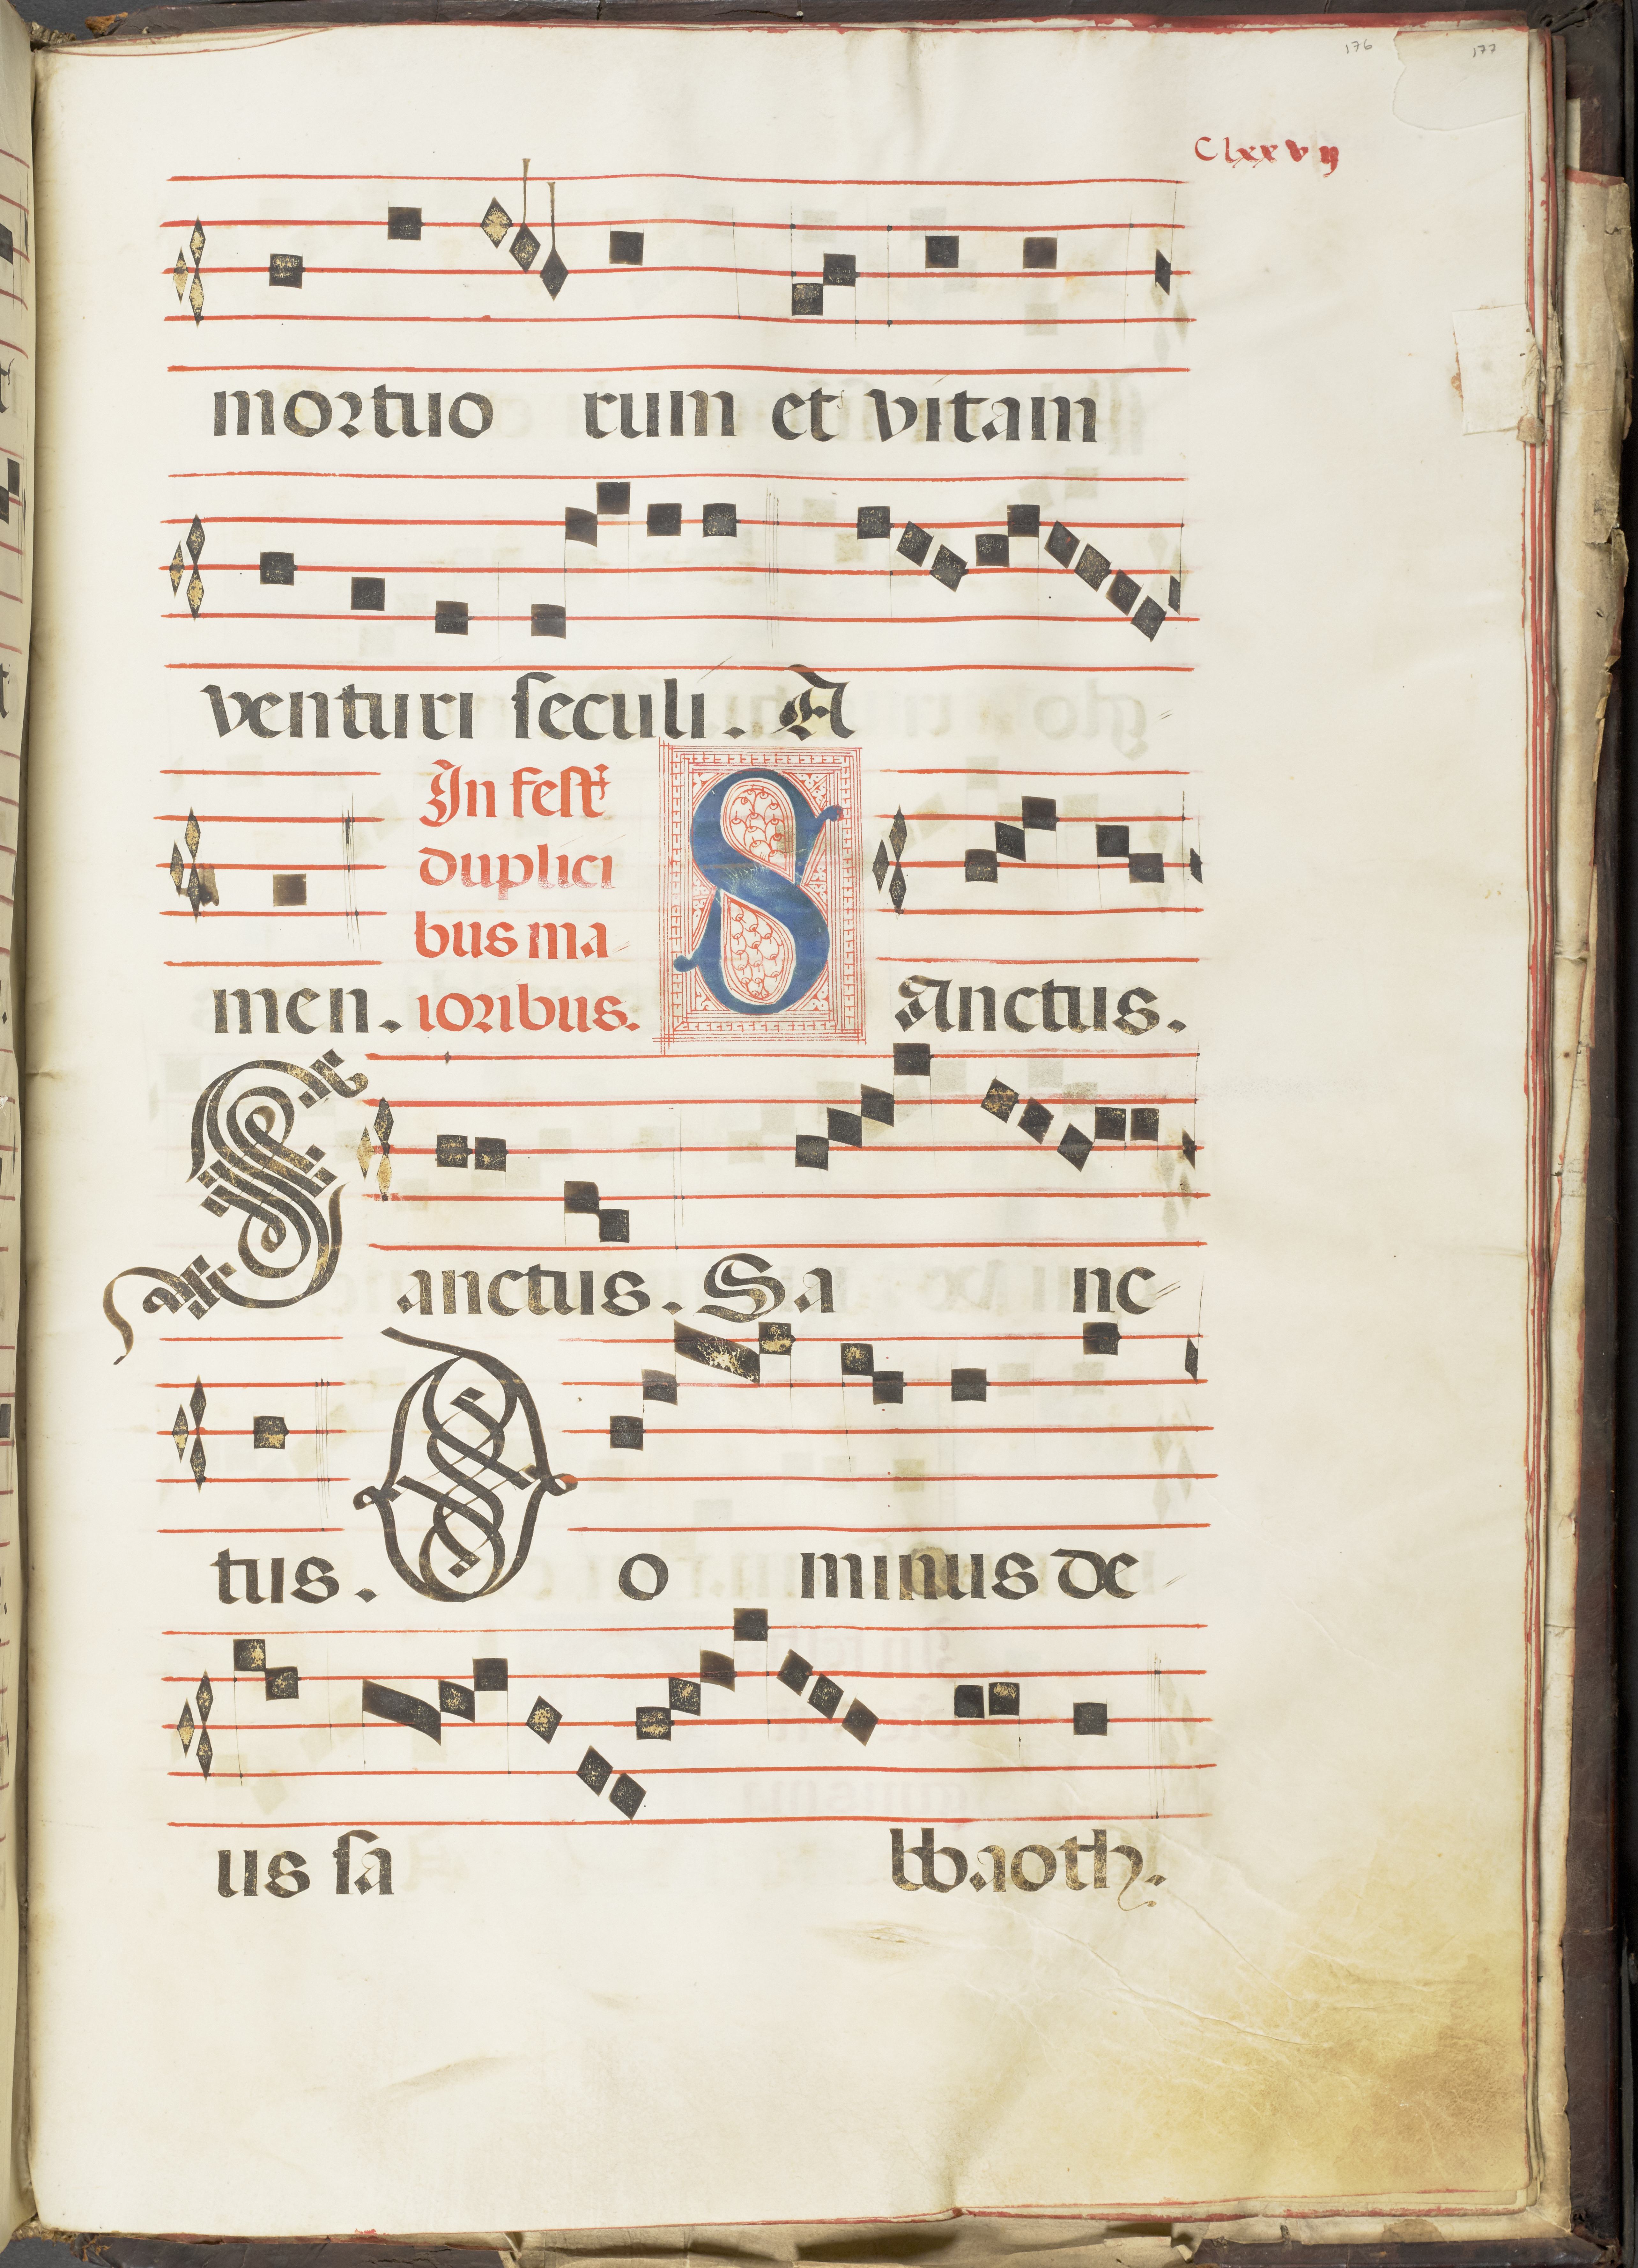 176 177
Clxxvij
mortuo rum et vitam
venturi seculi. A
In fest
duplici
bus ma
men. ioribus. SAnctus.
Sanctus. Sa nc
tus. Do minus de
us sa bbaoth.